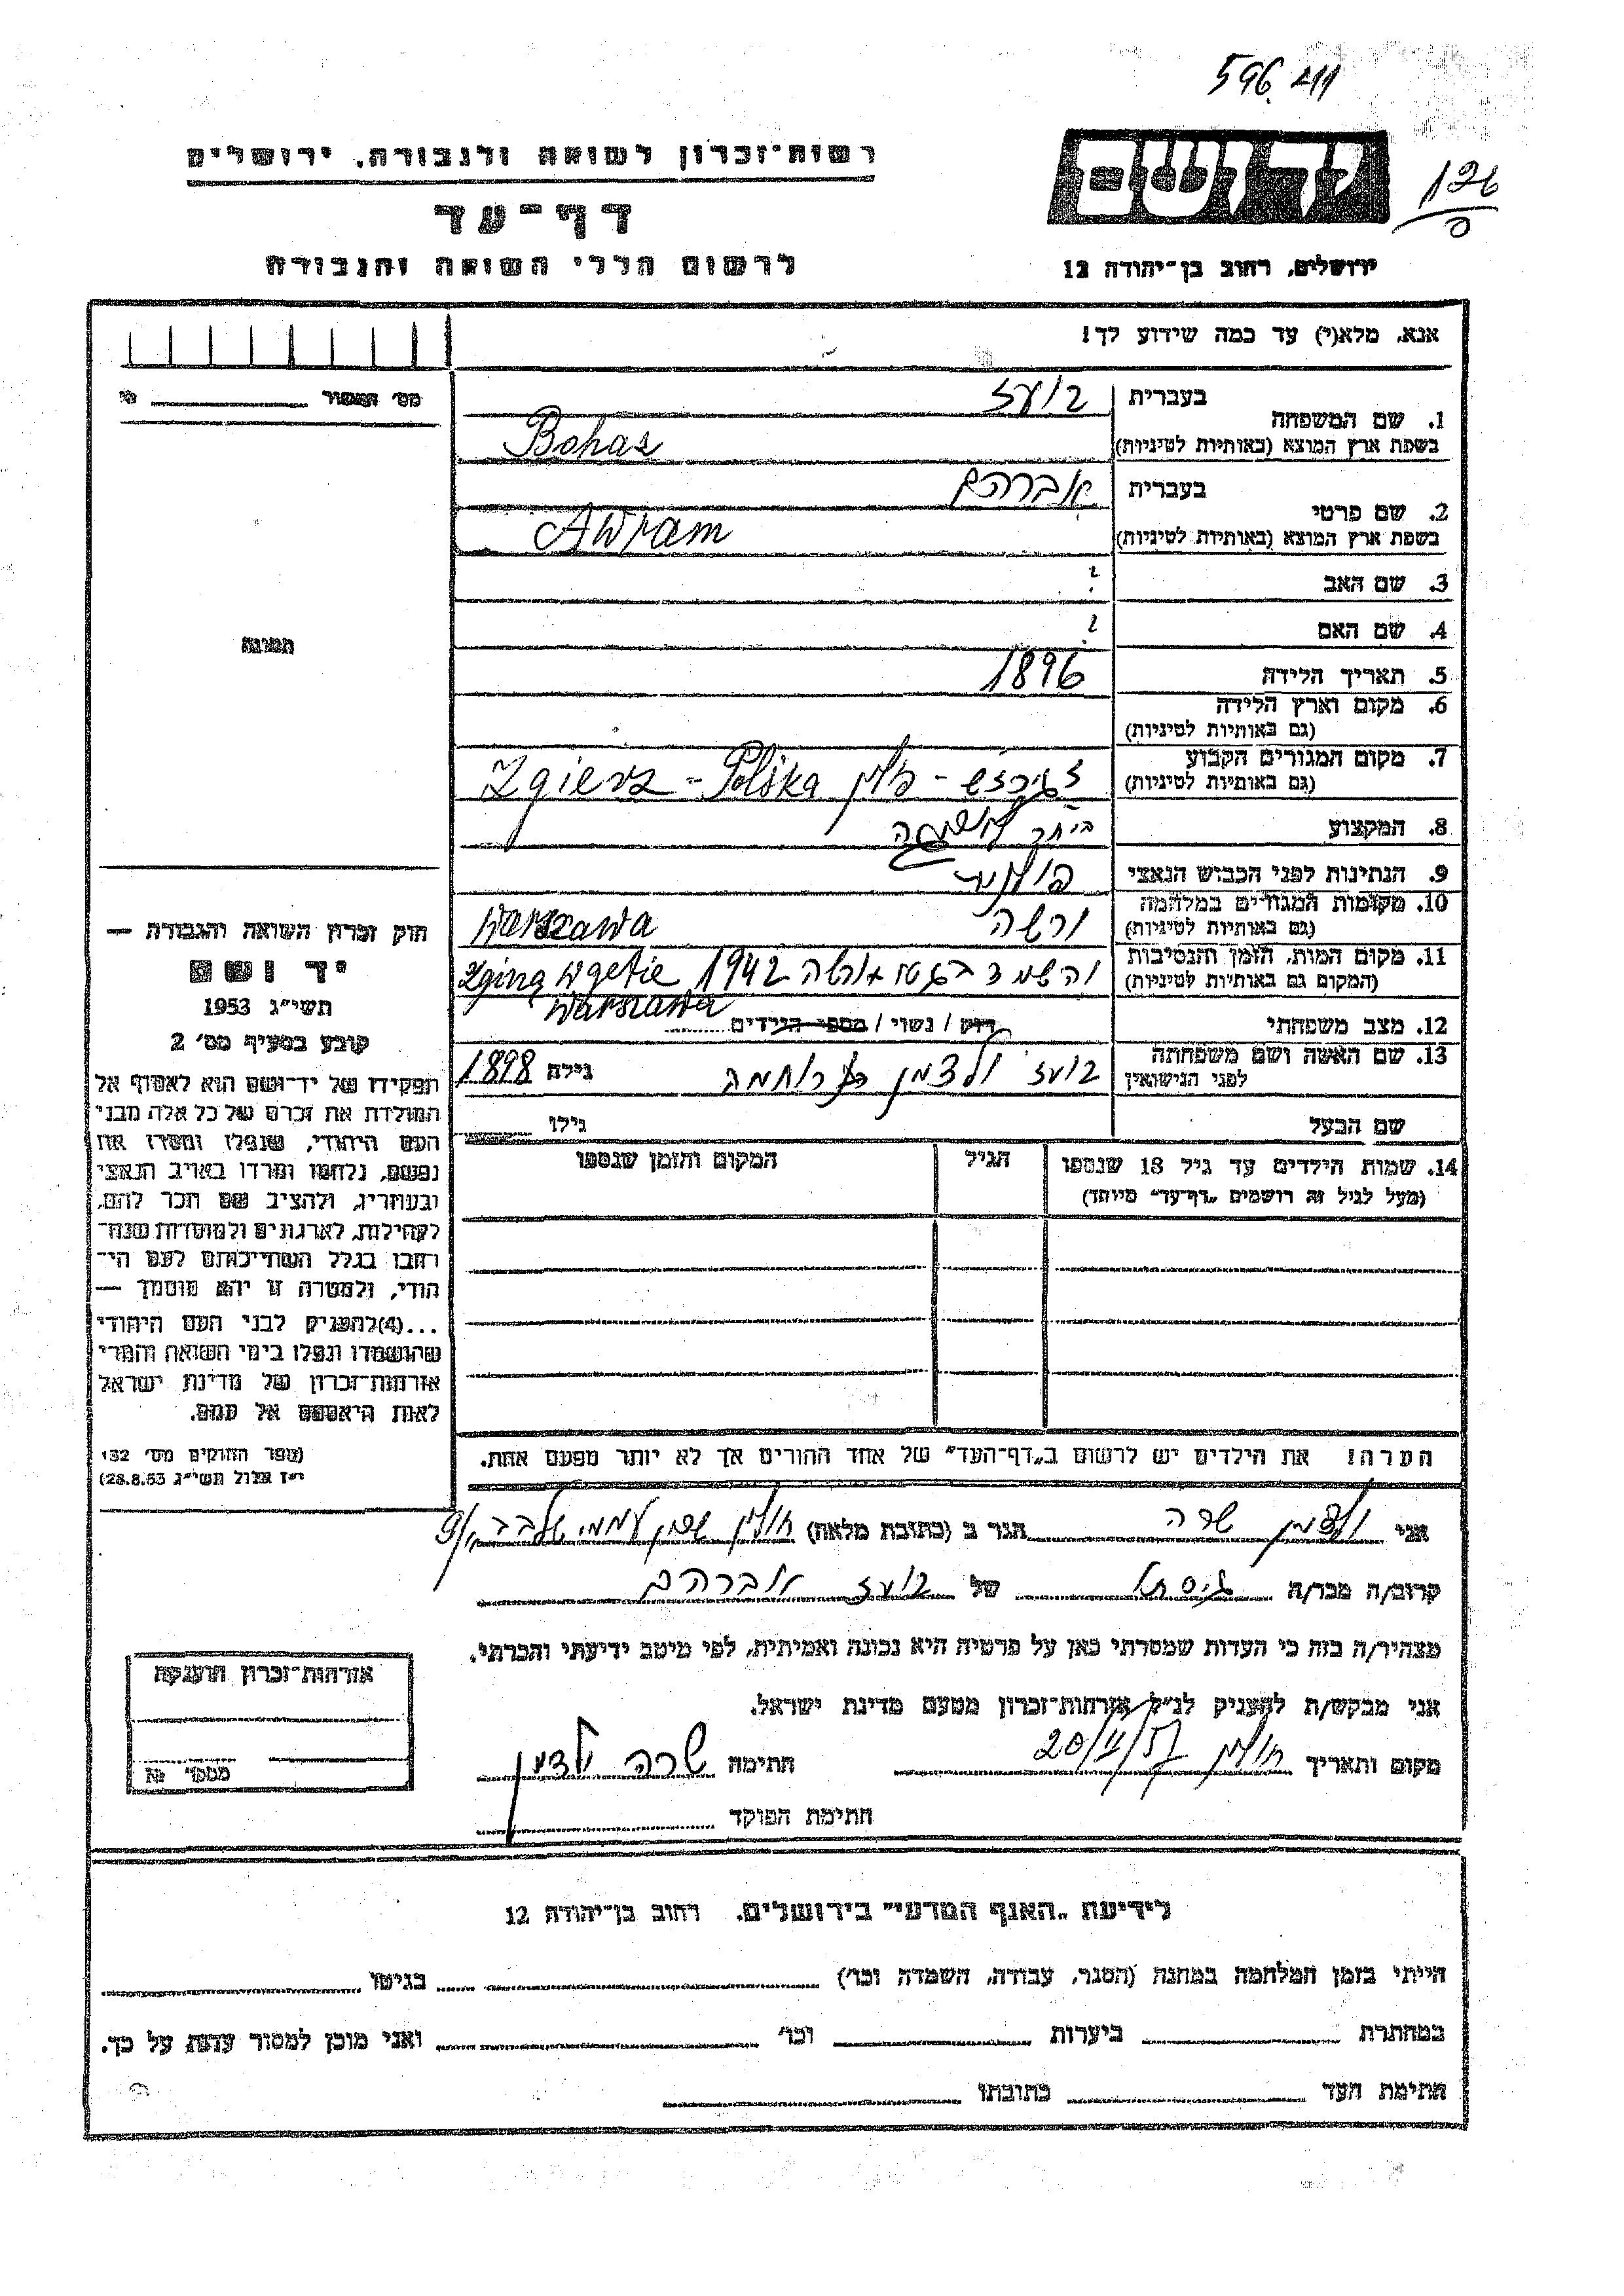 596 211
126
יד ושם
רשות־זכרון לשואה ולגבורה, ירושלים
דף־עד
לרשום חללי השואה והגבורה
ירושלים, רחוב בן־יהודה 12
אנא, מלא(י) עד כמה שידוע לך!
מס' המסור
בעברית בועז
1. שם המשפחה
בשפת ארץ המוצא (באותיות לטיניות) Bohaz
בעברית אברהם
2. שם פרטי
בשפת ארץ המוצא (באותיות לטיניות) Awram
3. שם האב ?
4. שם האם ?
5. תאריך הלידה 1896
6. מקום וארץ הלידה
(גם באותיות לטיניות)
7. מקום המגורים הקבוע
(גם באותיות לטיניות) זגירז - פולין Zgierz - Polska
8. המקצוע
9. הנתינות לפני הכבוש הנאצי פולנית
10. מקומות המגורים במלחמה
(גם באותיות לטיניות) ורשה Warszawa
11. מקום המות, הזמן והנסיבות
(המקום גם באותיות לטיניות) הושמד בגטו ורשה 1942 Zginą w getie
Warszawa
12. מצב משפחתי רוק / נשוי / מספר הילדים
13. שם האשה ושם משפחתה
לפני הנישואין בועז ולצמן נחמה גילה 1898
שם הבעל גילו
14. שמות הילדים עד גיל 18 שנספו הגיל המקום והזמן שנספו
(מעל לגיל זה רושמים „דף־עד” מיוחד)
הערה! את הילדים יש לרשום ב„דף־העד” של אחד ההורים אך לא יותר מפעם אחת.
תמונה
חוק זכרון השואה והגבורה —
יד ושם
תשי״ג 1953
קובע בסעיף מס' 2
תפקידו של יד־ושם הוא לאסוף אל
המולדת את זכרם של כל אלה מבני
העם היהודי, שנפלו ומסרו את
נפשם, נלחמו ומרדו באויב הנאצי
ובעוזריו, ולהציב שם וזכר להם,
לקהילות, לארגונים ולמוסדות שנח־
רבו בגלל השתייכותם לעם הי־
הודי, ולמטרה זו יהא מוסמך —
...(4) להעניק לבני העם היהודי
שהושמדו ונפלו בימי השואה והמרי
אזרחות־זכרון של מדינת ישראל
לאות היאספם אל עמם.
(ספר החוקים מס' 132,
י״ז אלול תשי״ג 28.8.53)
אני ולצמן שרה הגר ב (כתובת מלאה) חולון
קרוב/ה מכר/ה גיסתו של בועז אברהם
מצהיר/ה בזה כי העדות שמסרתי כאן על פרטיה היא נכונה ואמיתית, לפי מיטב ידיעתי והכרתי.
אני מבקש/ת להעניק לנ״ל אזרחות־זכרון מטעם מדינת ישראל.
מקום ותאריך חולון חתימה שרה ולצמן
חתימת הפוקד
אזרחות־זכרון הוענקה
מספר
לידיעת „האגף המדעי” בירושלים, רחוב בן־יהודה 12
הייתי בזמן המלחמה במחנה (הסגר, עבודה, השמדה וכו') בגיטו
במחתרת ביערות וכו' ואני מוכן למסור עדות על כך.
חתימת העד כתובתו